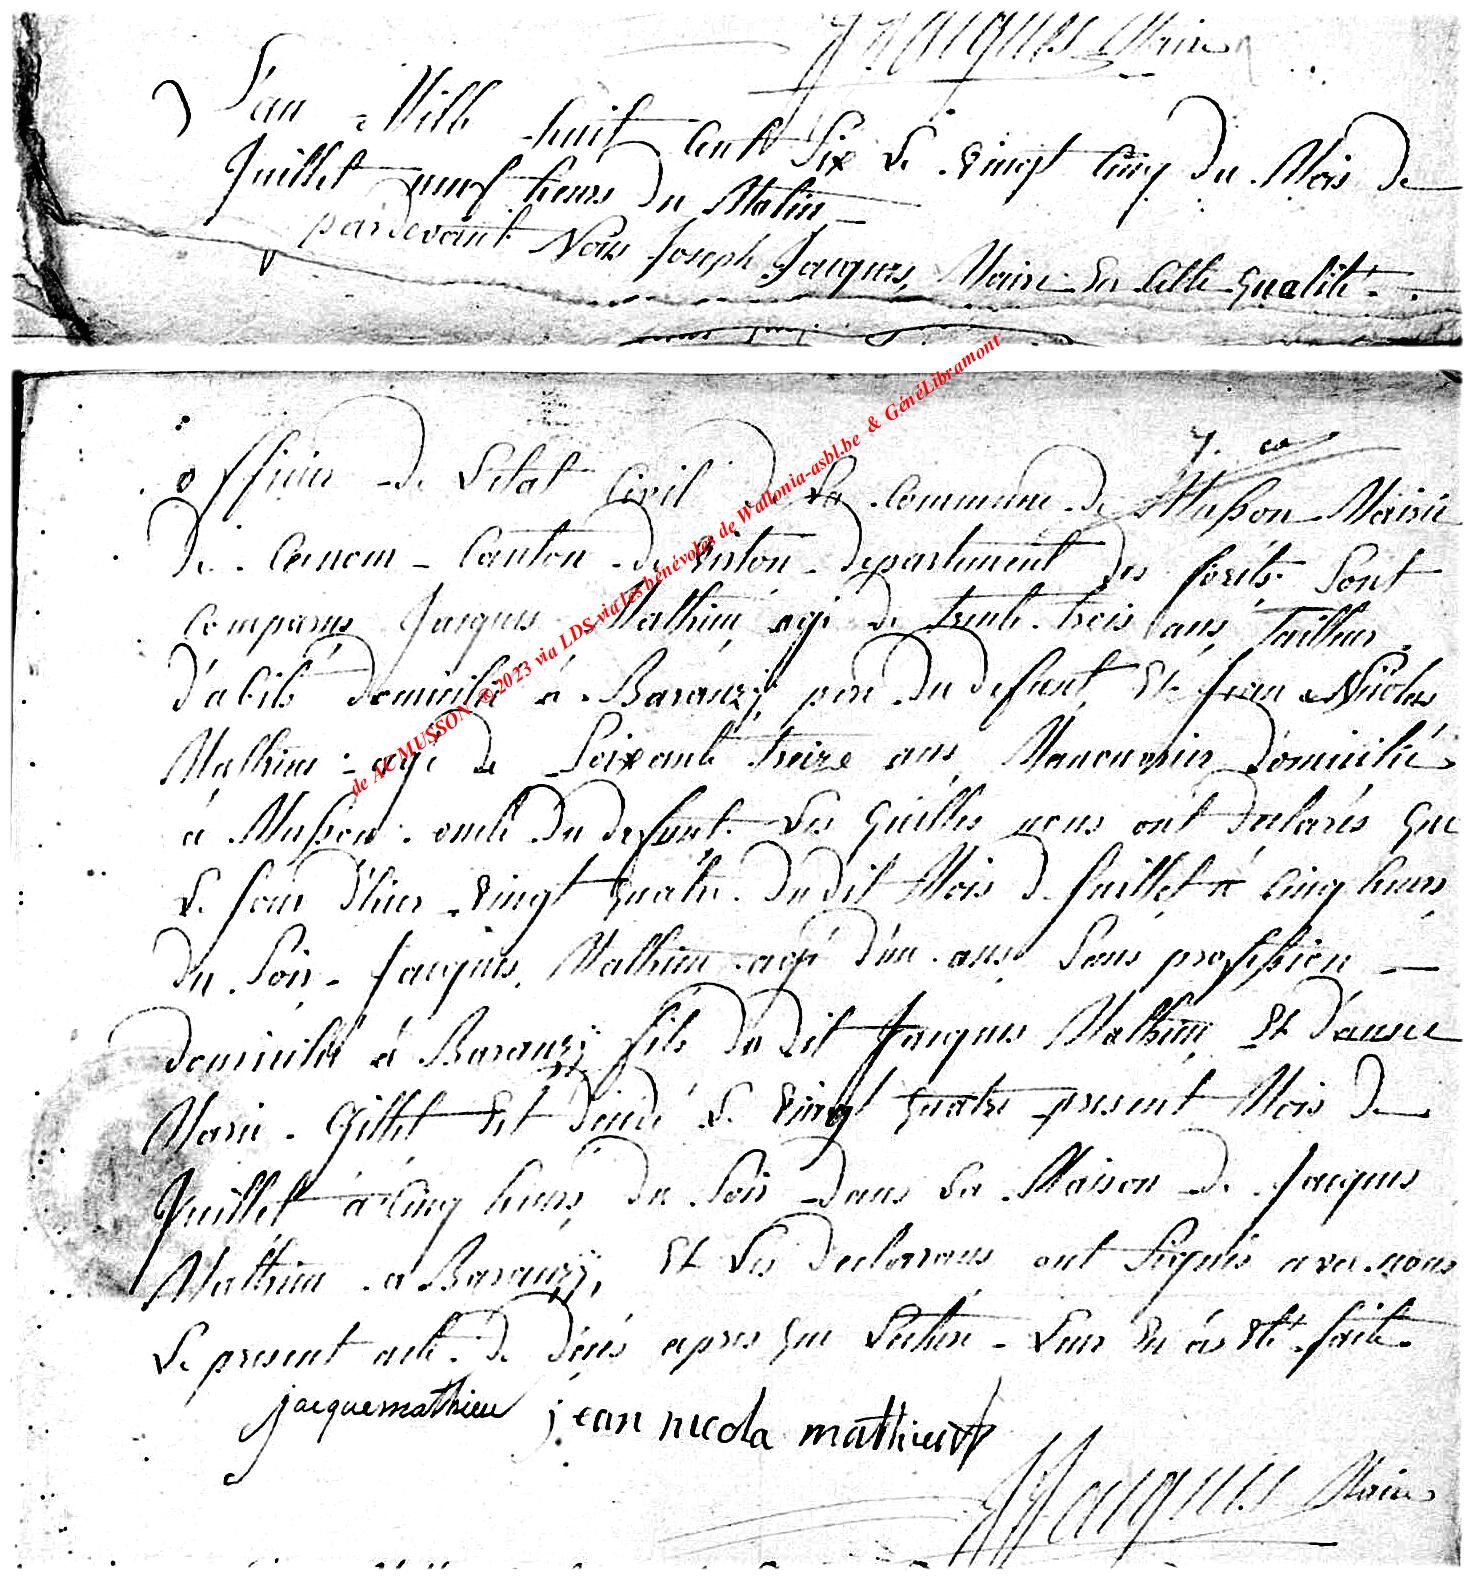 JJacques Maire
L'an Mille huit Cent Six Le vingt Cinq du Mois de
Juillet neuf heures du Matin
pardevant Nous Joseph Jacques, Maire En Cette Qualité
officier de L'etat Civil de La Commune de Musson Mairie
de Ce nom Canton de Virton departement des forêts Sont
Comparus Jacques Mathieu agé de trente trois ans Tailleur
d'abits domicilié à Baranzÿ, pere du defunt, Et Jean Nicolas
Mathieu agé de Soixante treize ans Manouvrier domicilié
à Musson oncle du defunt. Les Quelles nous ont declarés Que
Le Jour d'hier vingt Quatre dudit Mois de Juillet à Cinq heures
du Soir Jacques Mathieu agé d'un ans Sans profession
domicilié à Baranzÿ fils du dit Jacques Mathieu Et d'anne
Marie Gillet Est décidé Le vingt Quatre present Mois de
Juillet à Cinq heures du Soir dans La Maison de Jacques
Mathieu a Baranzÿ, Et Les declarans ont Signés avec nous
Le present acte de décés apres Que Lecture Leur En ás Eté faite
jacquemathieu jean nicola mathieu
JJacques Maire
de ACMUSSON ©2023 via LDS via les bénévoles de Wallonia-asbl.be & GénéLibramont